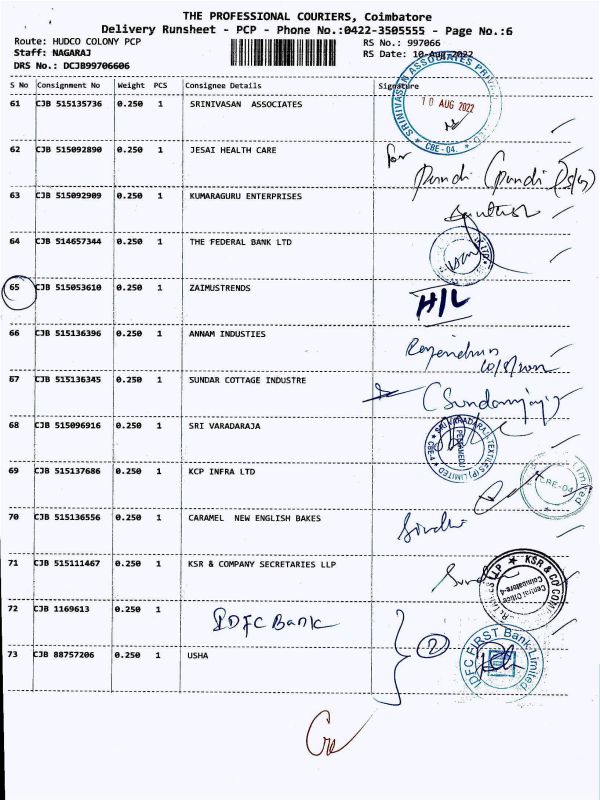 THE PROFESSIONAL COURIERS, Coimbatore
Delivery Runsheet - PCP - Phone No.:0422-3505555 - Page No.:6
Route: HUDCO COLONY PCP
RS No.: 997066
Staff: NAGARAJ
RS Date: 10-Aug-2022
DRS No.: DCJB99706606
S No Consignment No Weight PCS Consignee Details Signature
61 CJB 515135736 0.250 1 SRINIVASAN ASSOCIATES
SRINIVASAN ASSOCIATES
10 AUG 2022
CBE - 04.
62 CJB 515092890 0.250 1 JESAI HEALTH CARE
for
63 CJB 515092909 0.250 1 KUMARAGURU ENTERPRISES
64 CJB 514657344 0.250 1 THE FEDERAL BANK LTD
65 CJB 515053610 0.250 1 ZAIMUSTRENDS H/L
66 CJB 515136396 0.250 1 ANNAM INDUSTIES
67 CJB 515136345 0.250 1 SUNDAR COTTAGE INDUSTRE
68 CJB 515096916 0.250 1 SRI VARADARAJA
SRI VARADARAJA TEXTILES (P) LIMITED
CBE-4
69 CJB 515137686 0.250 1 KCP INFRA LTD
CBE-04
70 CJB 515136556 0.250 1 CARAMEL NEW ENGLISH BAKES
71 CJB 515111467 0.250 1 KSR & COMPANY SECRETARIES LLP
KSR & CO COMP
Central Office
Coimbatore-4
72 CJB 1169613 0.250 1 IDFC Bank
2
IDFC FIRST Bank Limited
73 CJB 88757206 0.250 1 USHA